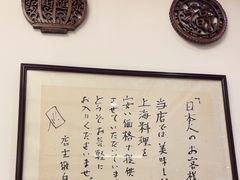 「日本人のお客様
当店では美味しい
上海料理を
安い価格で提供
させていただいて
ます。
どうぞお気軽に
お入りくださいませ。
店主敬白